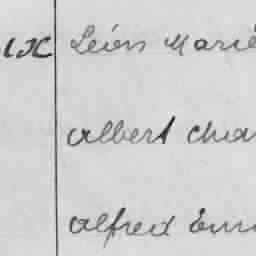 Léon Marie
Albert Char
Alfred Emi